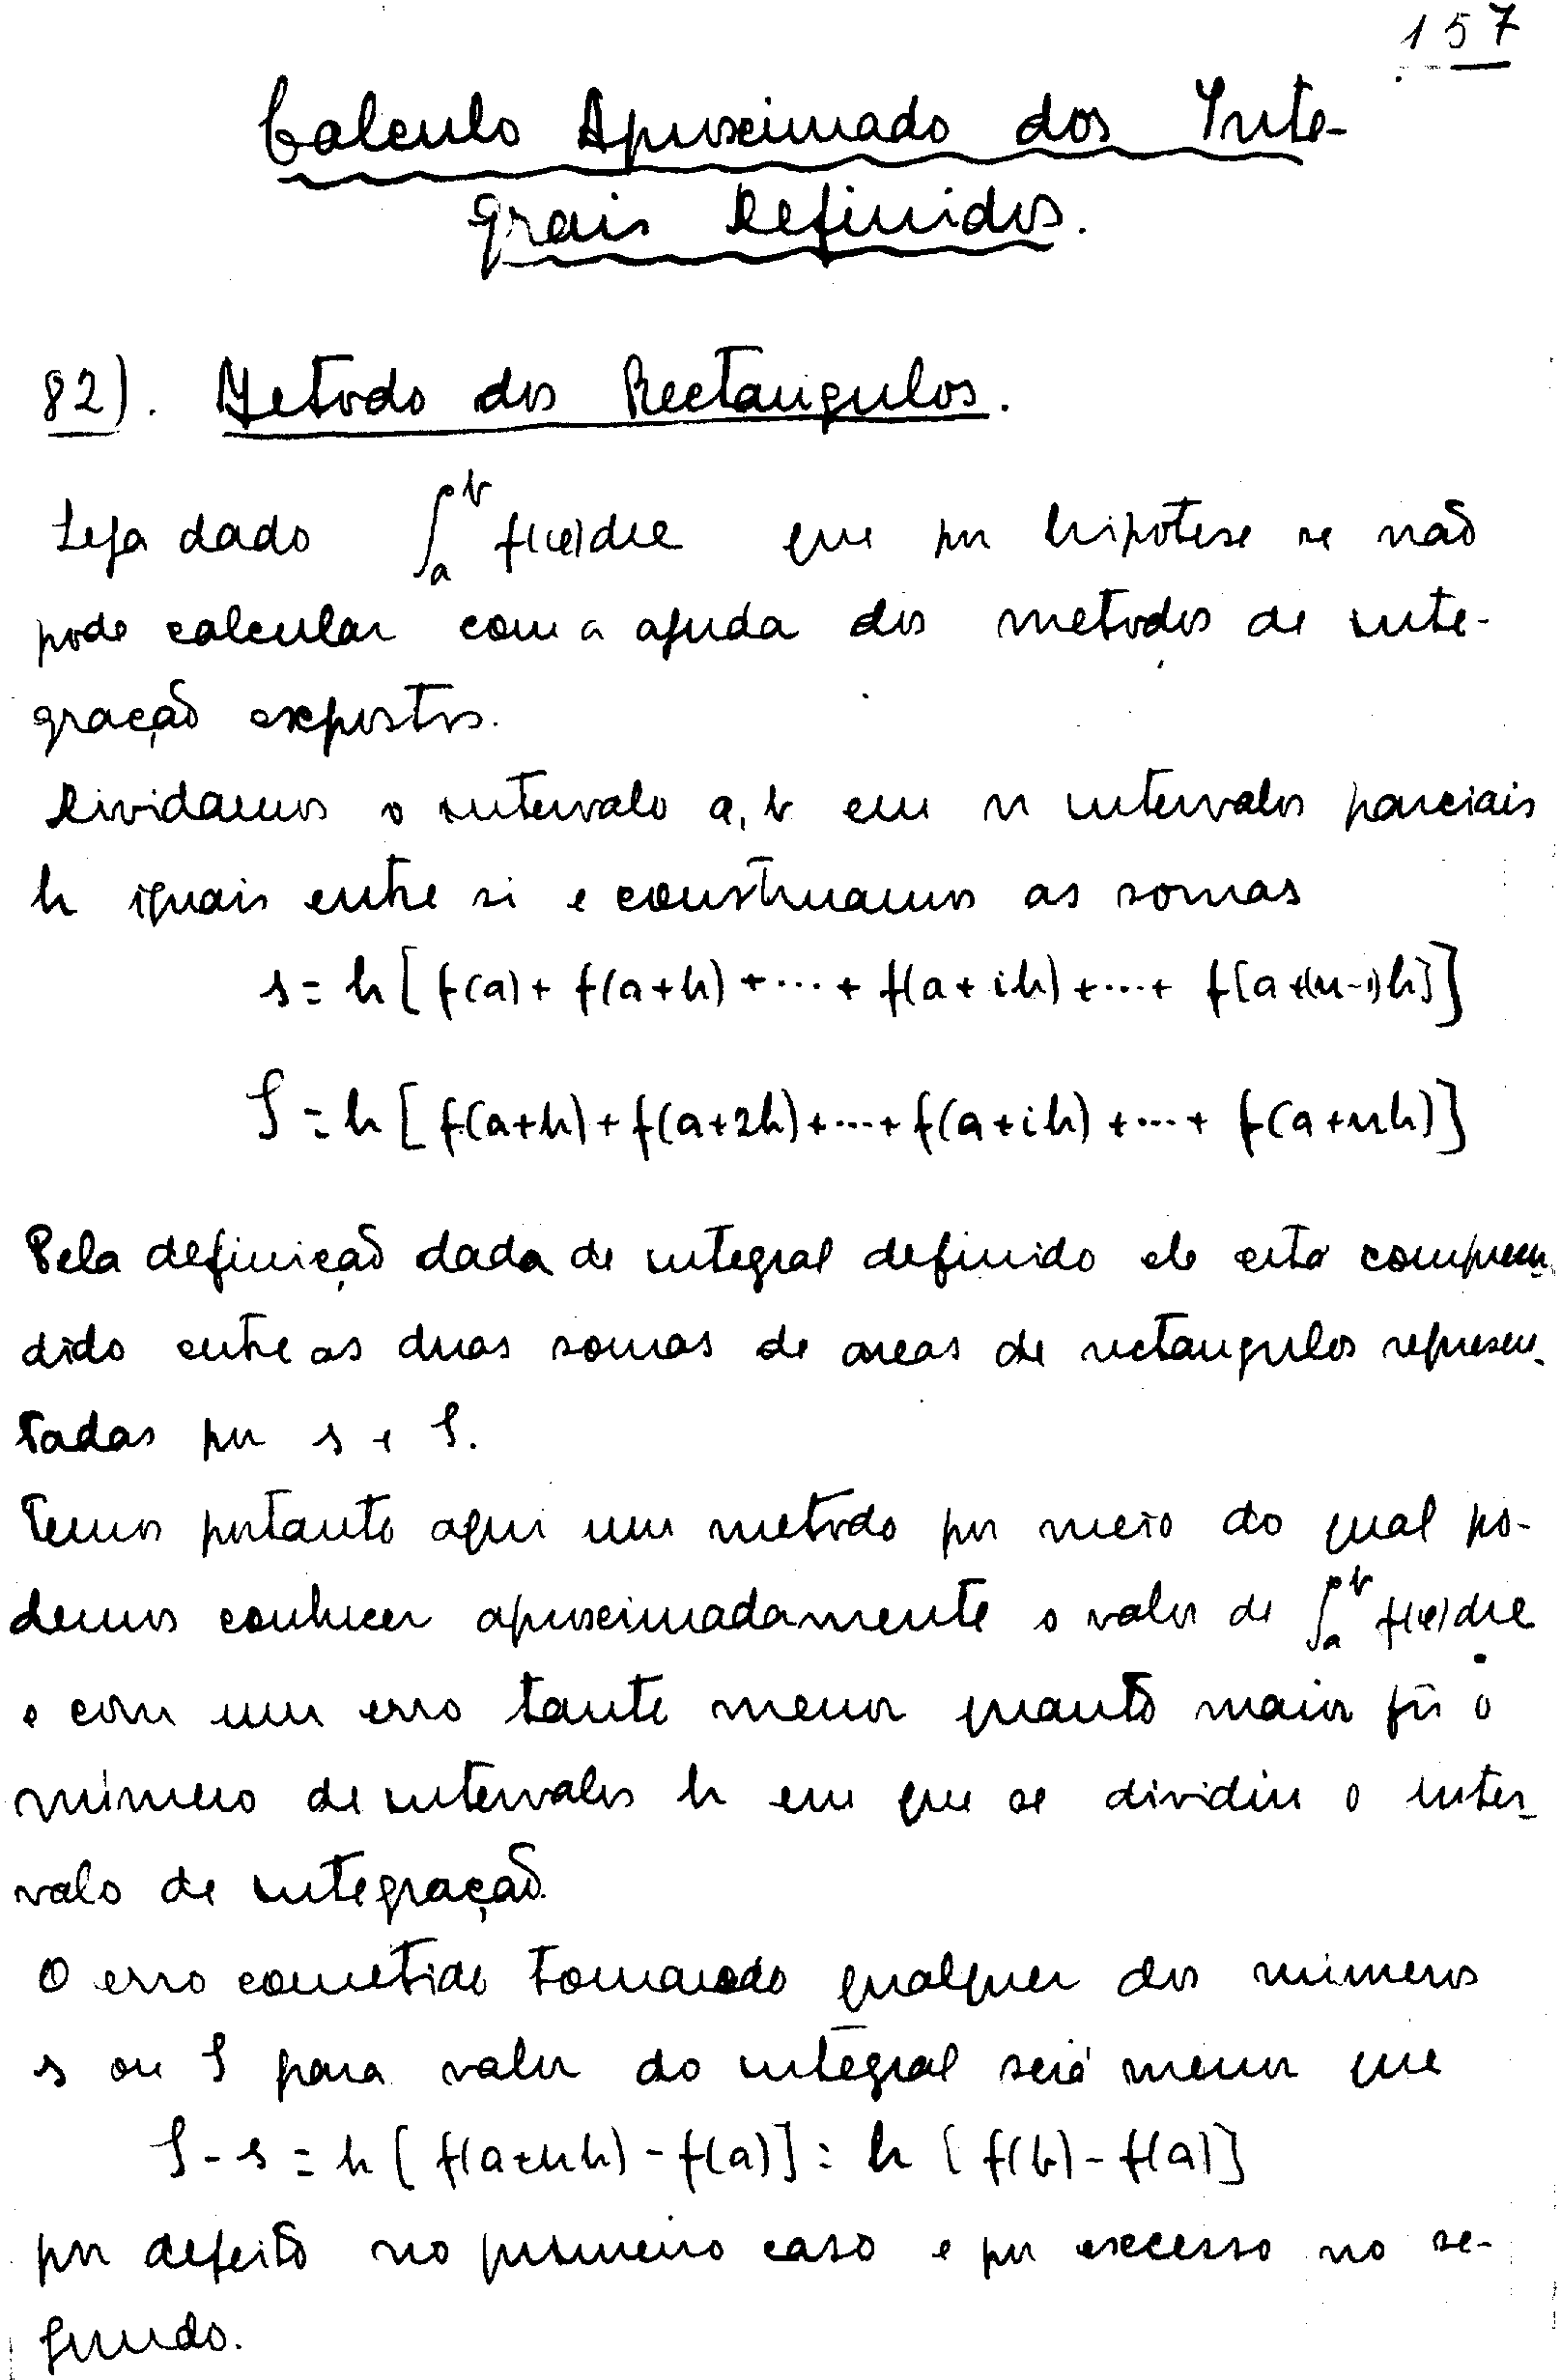 157
Calculo Aproximado dos Inte-
grais Definidos.
82). Metodo dos Rectangulos.
Seja dado ∫_a^b f(x)dx que por hipotese se não
pode calcular com a ajuda dos metodos de inte-
gração expostos.
Dividamos o intervalo a, b em n intervalos parciais
h iguais entre si e construamos as somas
s = h [ f(a) + f(a+h) + ... + f(a+ih) + ... + f[a+(n-1)h] ]
S = h [ f(a+h) + f(a+2h) + ... + f(a+ih) + ... + f(a+nh) ]
Pela definição dada de integral definido ele está compreen-
dido entre as duas somas de areas de rectangulos represen-
tadas por s e S.
Temos portanto aqui um metodo por meio do qual po-
demos conhecer aproximadamente o valor de ∫_a^b f(x)dx
e com um erro tante menor quanto maior fôr o
número de intervalos h em que se dividiu o inter-
valo de integração.
O erro cometido tomando qualquer dos números
s ou S para valor do integral será menor que
S - s = h [ f(a+nh) - f(a) ] = h [ f(b) - f(a) ]
por defeito no primeiro caso e por excesso no se-
gundo.